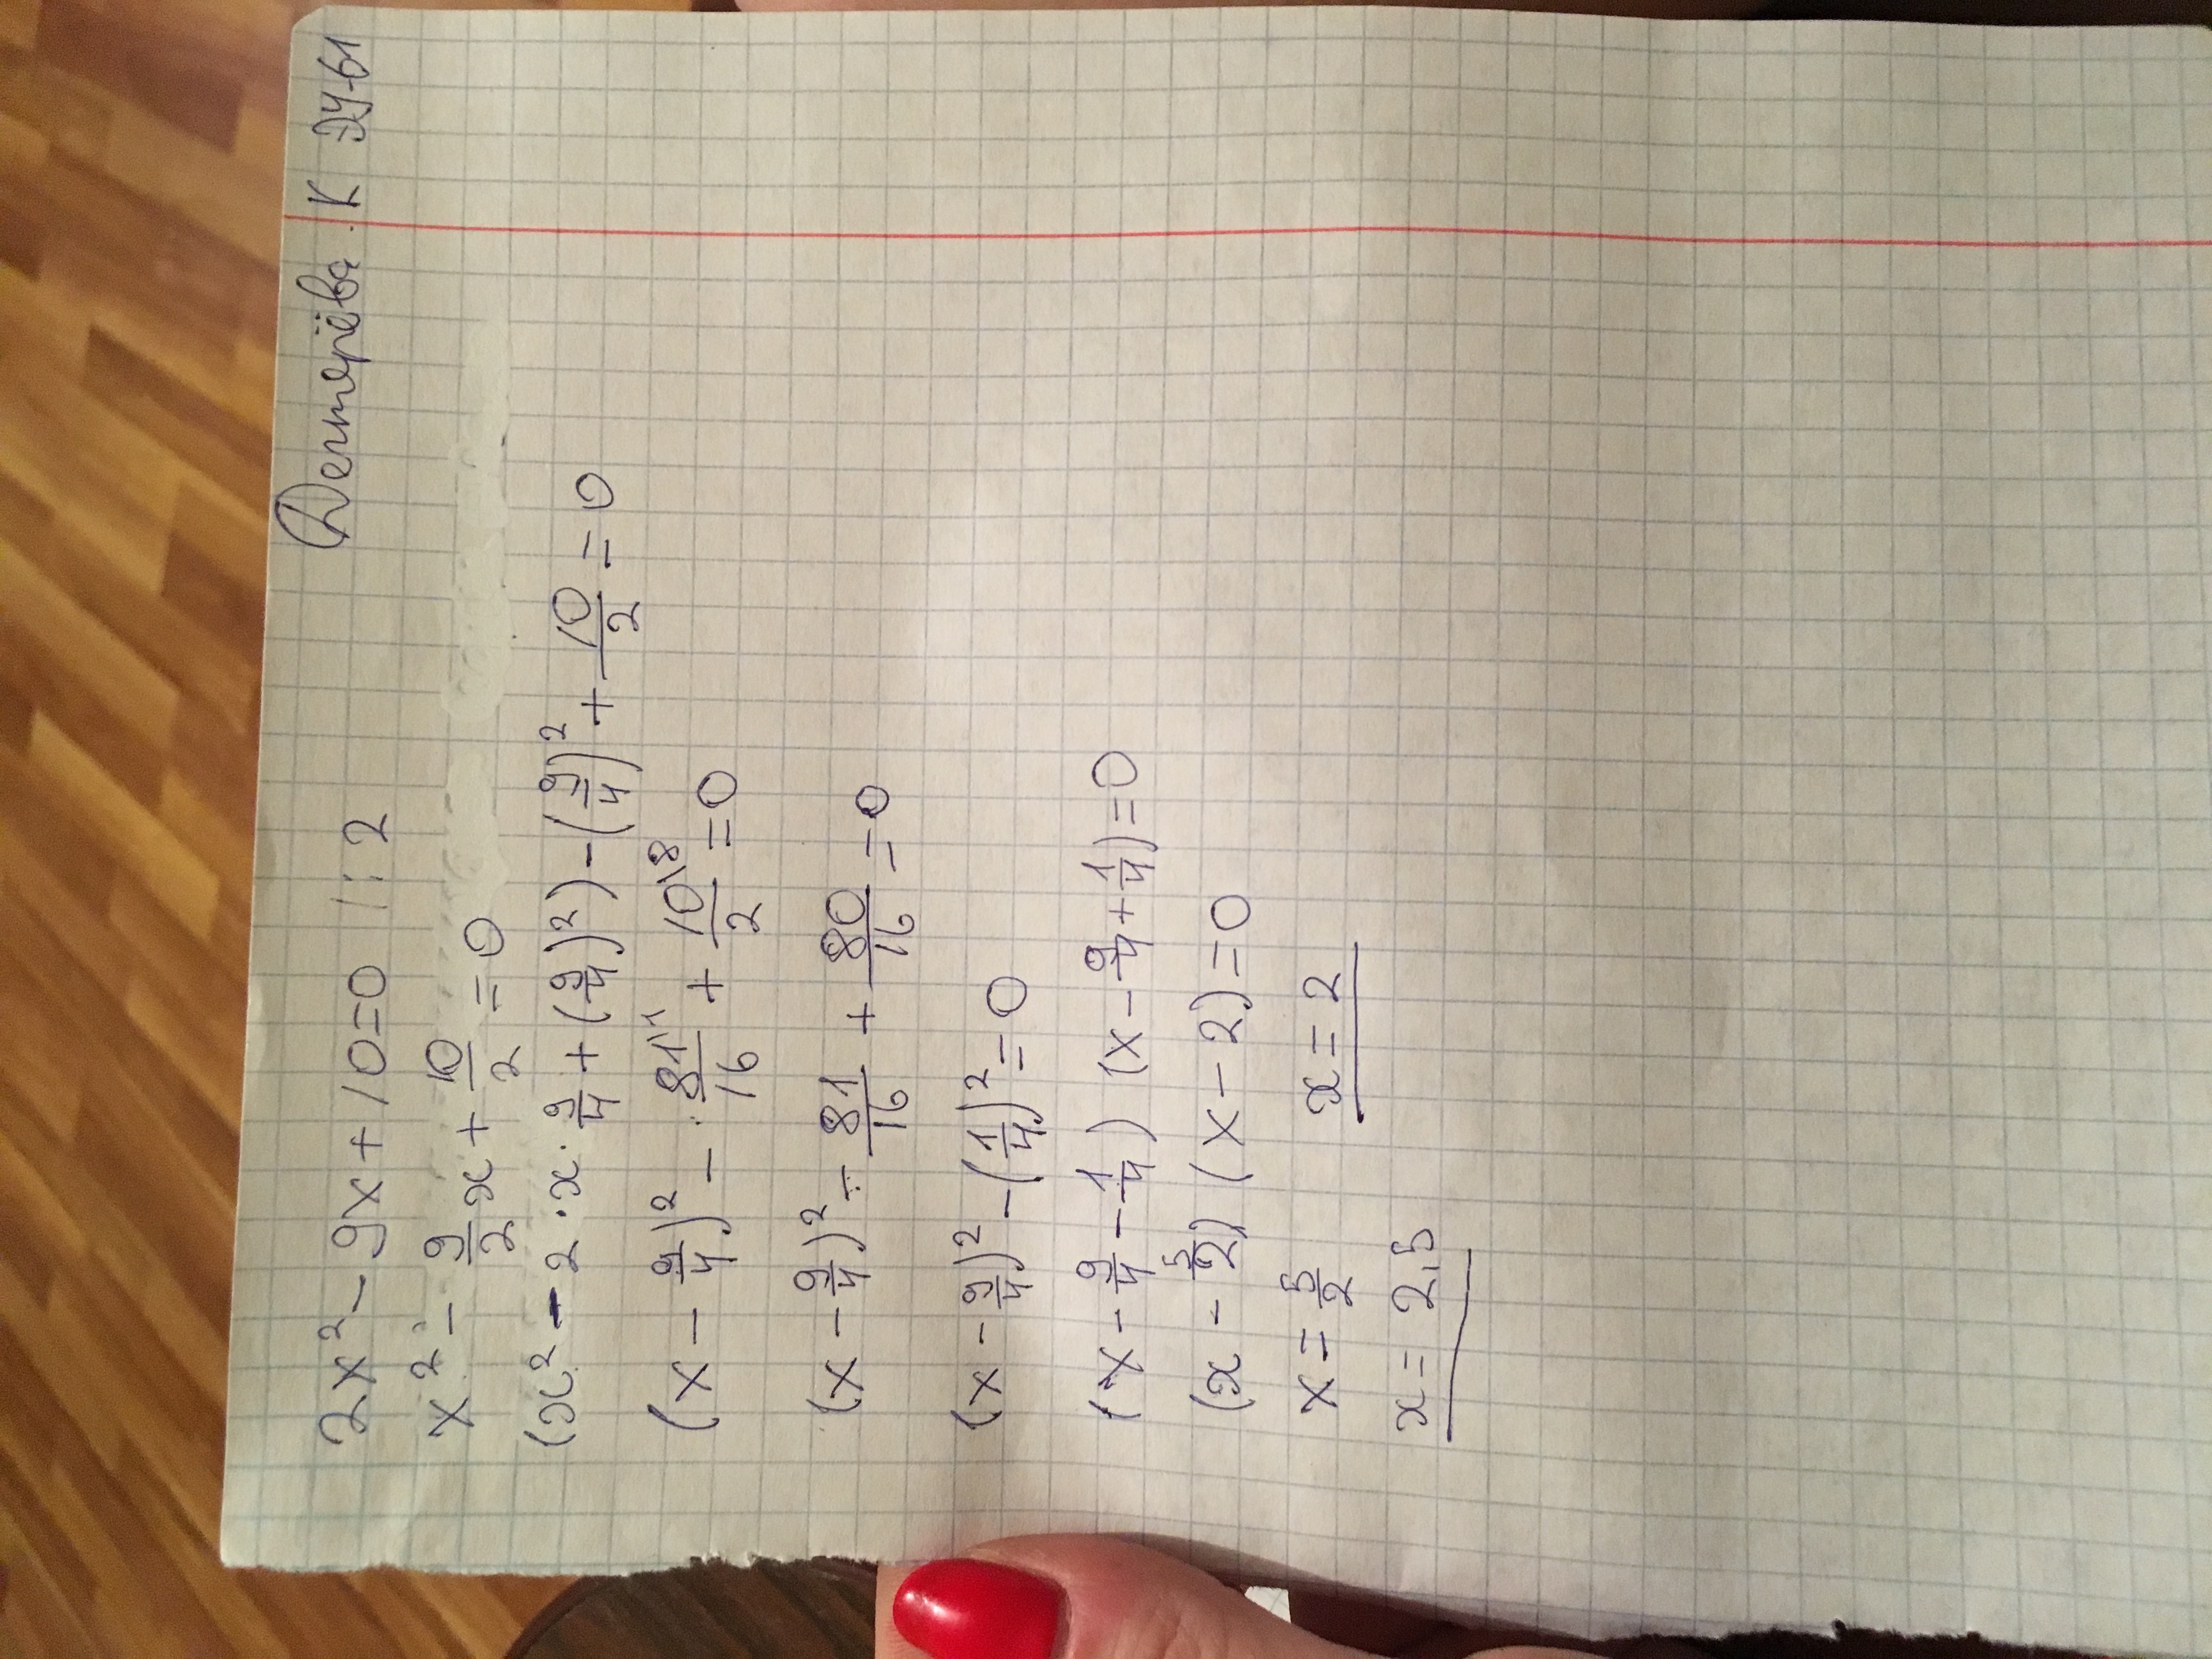 Дегтерёва К ЭУ-61
2x² - 9x + 10 = 0 |: 2
x² - 9/2 x + 10/2 = 0
(x² - 2 · x · 9/4 + (9/4)²) - (9/4)² + 10/2 = 0
(x - 9/4)² - 81\1/16 + 10\8/2 = 0
(x - 9/4)² - 81/16 + 80/16 = 0
(x - 9/4)² - (1/4)² = 0
(x - 9/4 - 1/4) (x - 9/4 + 1/4) = 0
(x - 5/2) (x - 2) = 0
x = 5/2 x = 2
x = 2,5